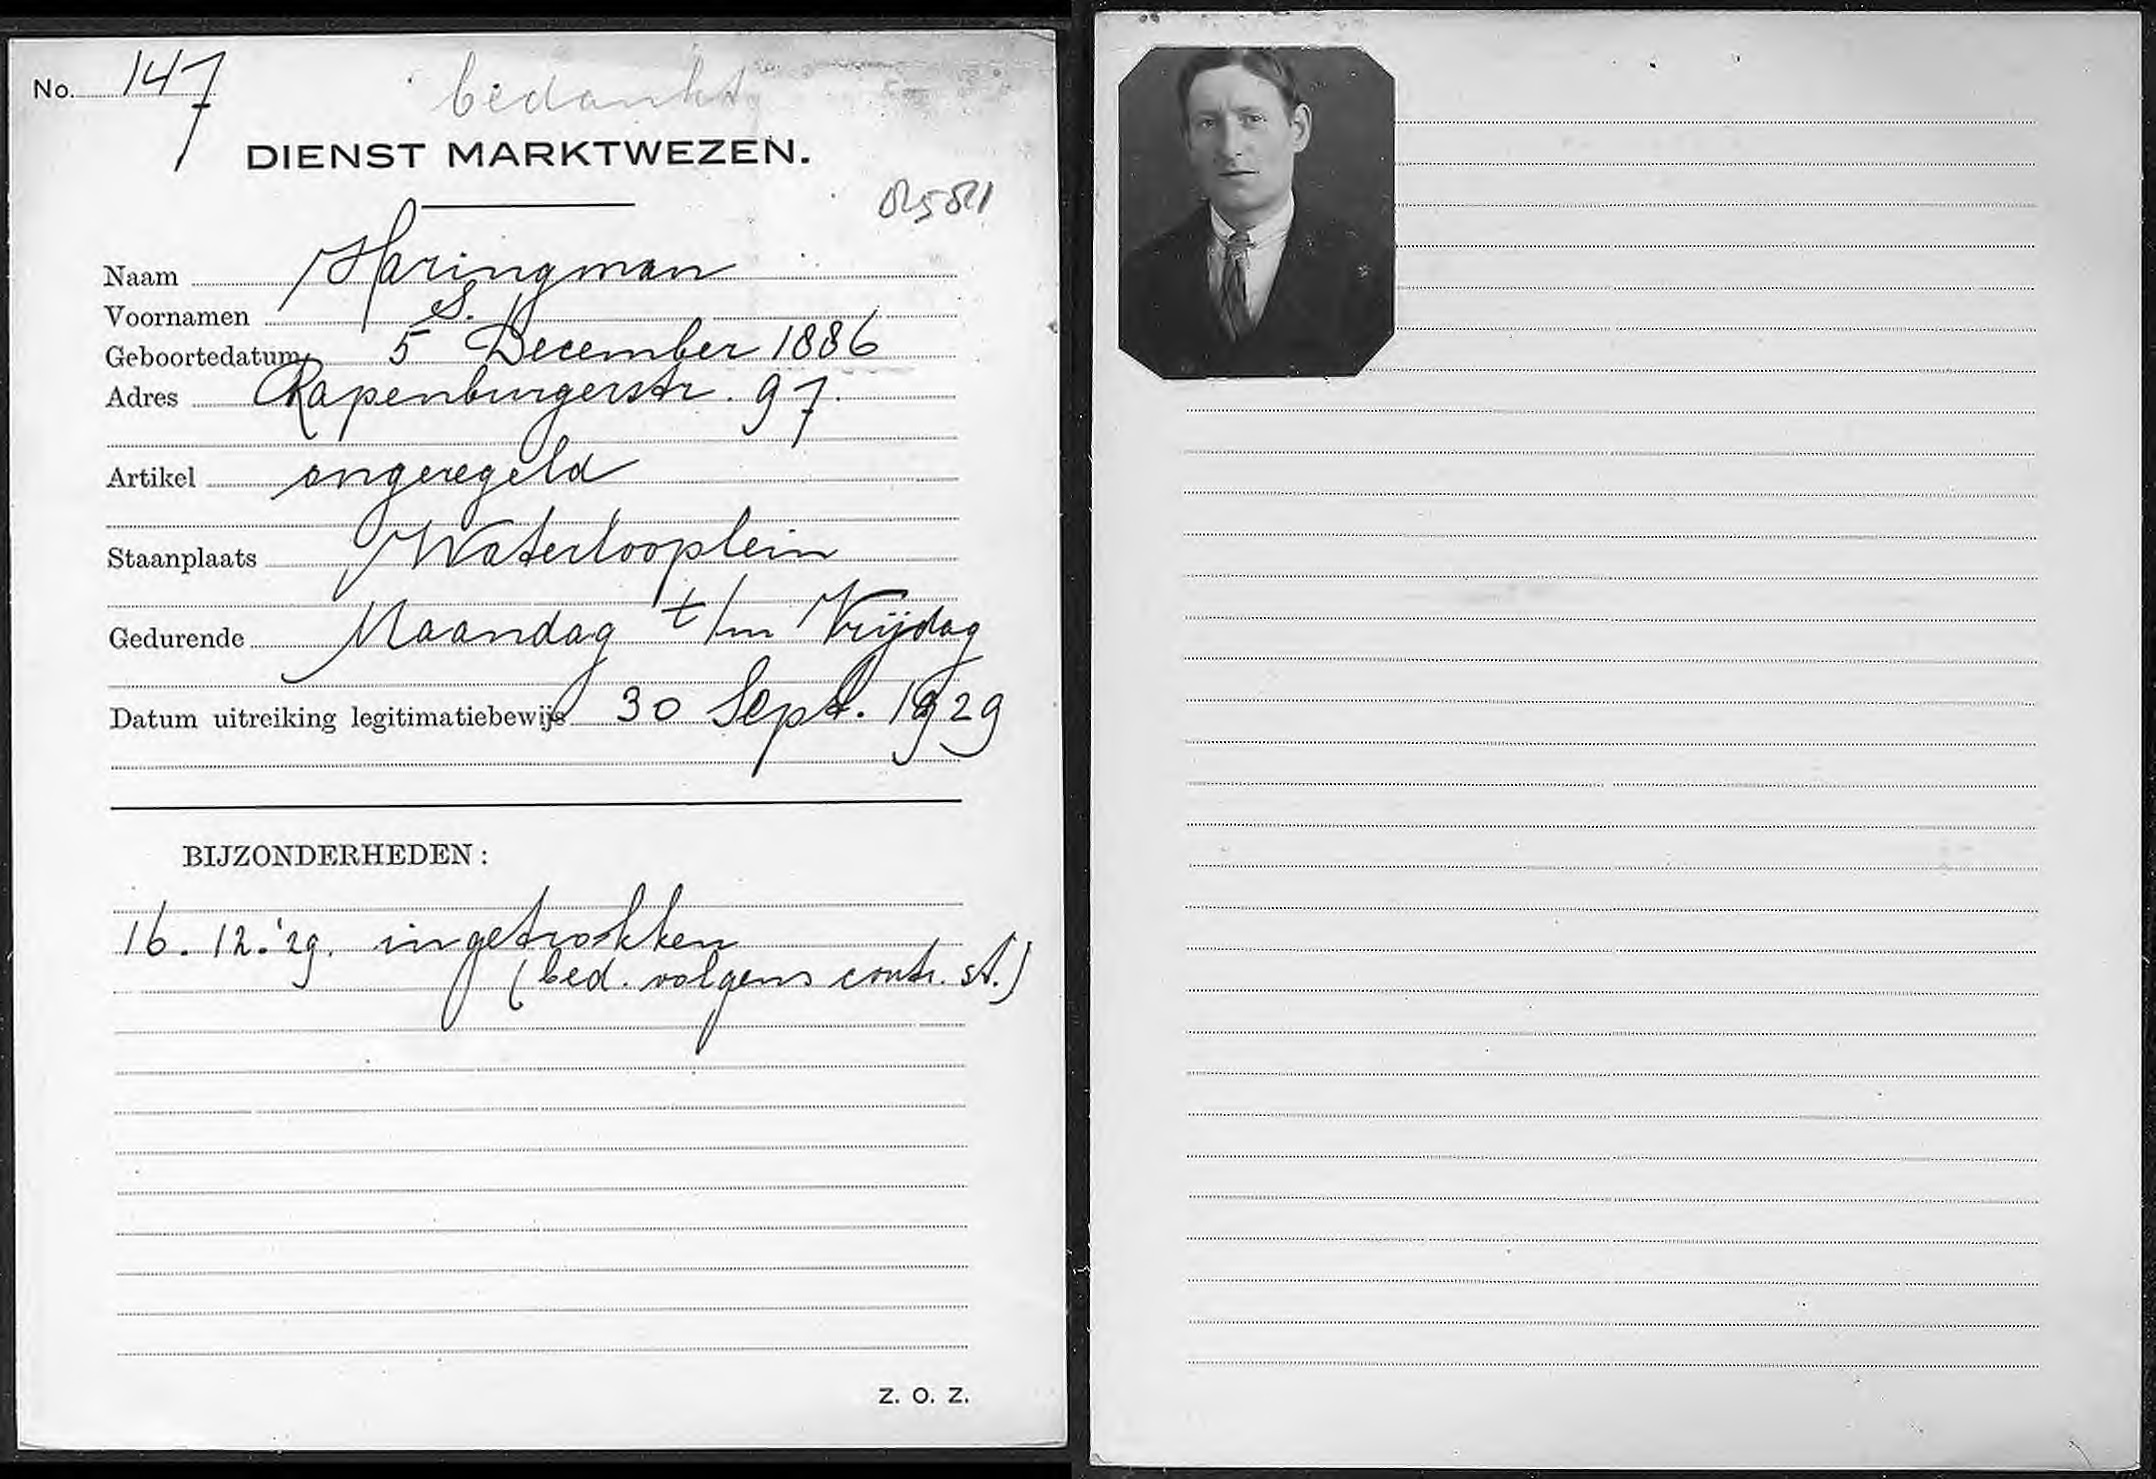 No. 147
bedankt
DIENST MARKTWEZEN.
Naam Haringman
Voornamen S.
Geboortedatum 5 December 1886
Adres Rapenburgerstr. 97.
Artikel ongeregeld
Staanplaats Waterlooplein
Gedurende Maandag t/m Vrijdag
Datum uitreiking legitimatiebewijs 30 Sept. 1929
BIJZONDERHEDEN :
16. 12. '29. ingetrokken
(bed. volgens contr. st.)
Z. O. Z.